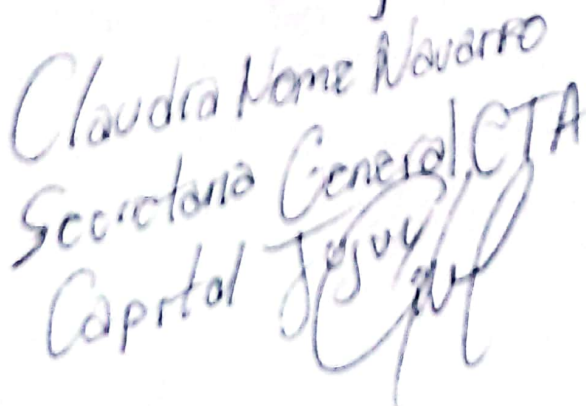 Claudia Nome Navarro
Secretaria General CTA
Capital Jujuy